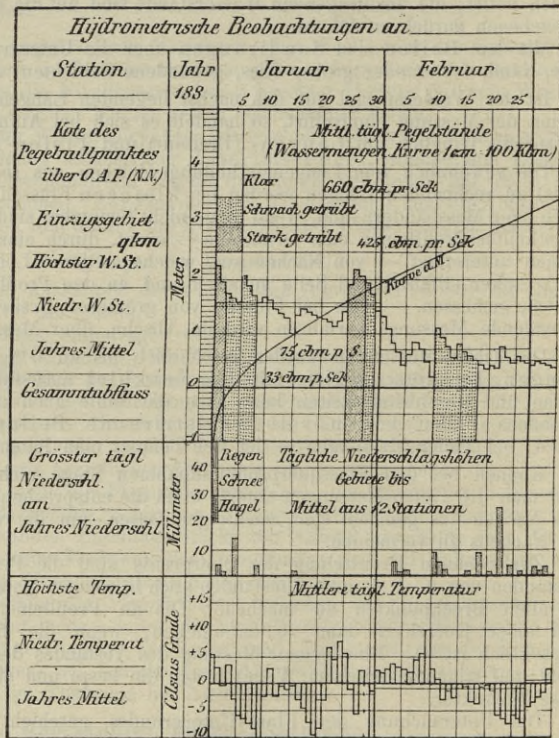 Hÿdrometrische Beobachtungen an
Station
Jahr
188
Januar
Februar
5 10 15 20 25 30
5 10 15 20 25
Kote des
Pegelnullpunktes
über O.A.P. (N.N.)
Einzugsgebiet
qkm
Höchster W. St.
Niedr. W. St.
Jahres Mittel
Gesammtabfluss
Meter
4
3
2
1
0
-1
Mittl. tägl. Pegelstände
(Wassermengen Kurve 1 cm 100 Kbm)
Klar
660 cbm pr Sek
Schwach getrübt
Stark getrübt
425 cbm pr Sek
Kurve d. M.
75 cbm p S.
33 cbm p Sek
Grösster tägl
Niederschl.
am
Jahres Niederschl
Millimeter
40
30
20
10
Regen
Schnee
Hagel
Tägliche Niederschlagshöhen
Gebiete bis
Mittel aus 12 Stationen
Höchste Temp.
Niedr. Temperat
Jahres Mittel
Celsius Grade
+15
+10
+5
0
-5
-10
Mittlere tägl. Temperatur